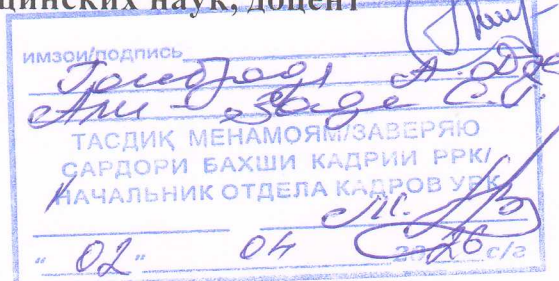 цинских наук, доцент
имзои/подпись
Али-Заде С.Г.
ТАСДИҚ МЕНАМОЯМ/ЗАВЕРЯЮ
САРДОРИ БАХШИ КАДРИИ РРК/
НАЧАЛЬНИК ОТДЕЛА КАДРОВ УРК
"02" 04 2026 с/г